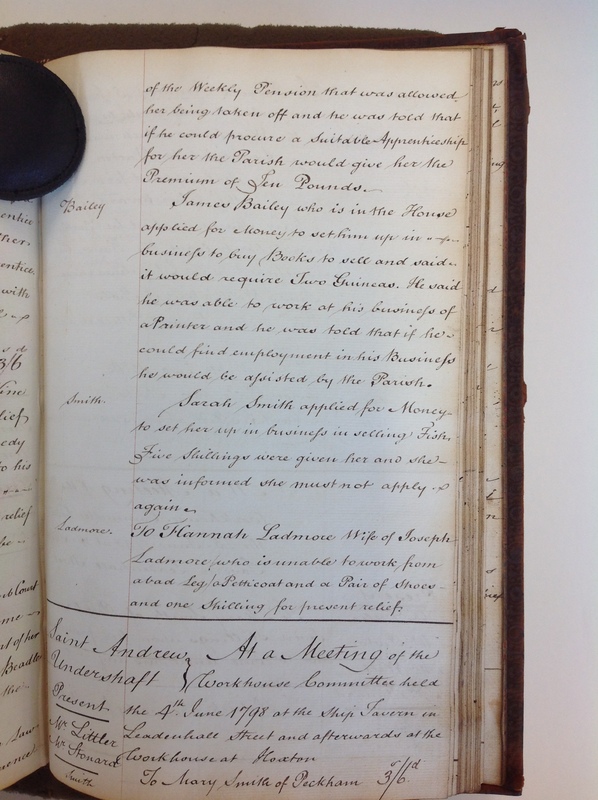 of the Weekly Pension that was allowed
her being taken off and he was told that
if he could procure a Suitable Apprenticeship
for her the Parish would give her the
Premium of Ten Pounds.
Bailey
James Bailey who is in the House
applied for Money to set him up in
business to buy Books to sell and said
it would require Two Guineas. He said
he was able to work at his business of
a Painter and he was told that if he
could find employment in his Business
he would be assisted by the Parish.
Smith.
Sarah Smith applied for Money
to set her up in business in selling Fish.
Five Shillings were given her and she
was informed she must not apply
again
Ladmore.
To Hannah Ladmore Wife of Joseph
Ladmore who is unable to work from
a bad Leg a Petticoat and a Pair of Shoes
and one Shilling for present relief.
Saint Andrew
Undershaft
At a Meeting of the
Workhouse Committee held
the 4th June 1798 at the Ship Tavern in
Leadenhall Street and afterwards at the
Workhouse at Hoxton
Present
Mr Littler
Mr Stonard
Smith
To Mary Smith of Peckham 3s/6d